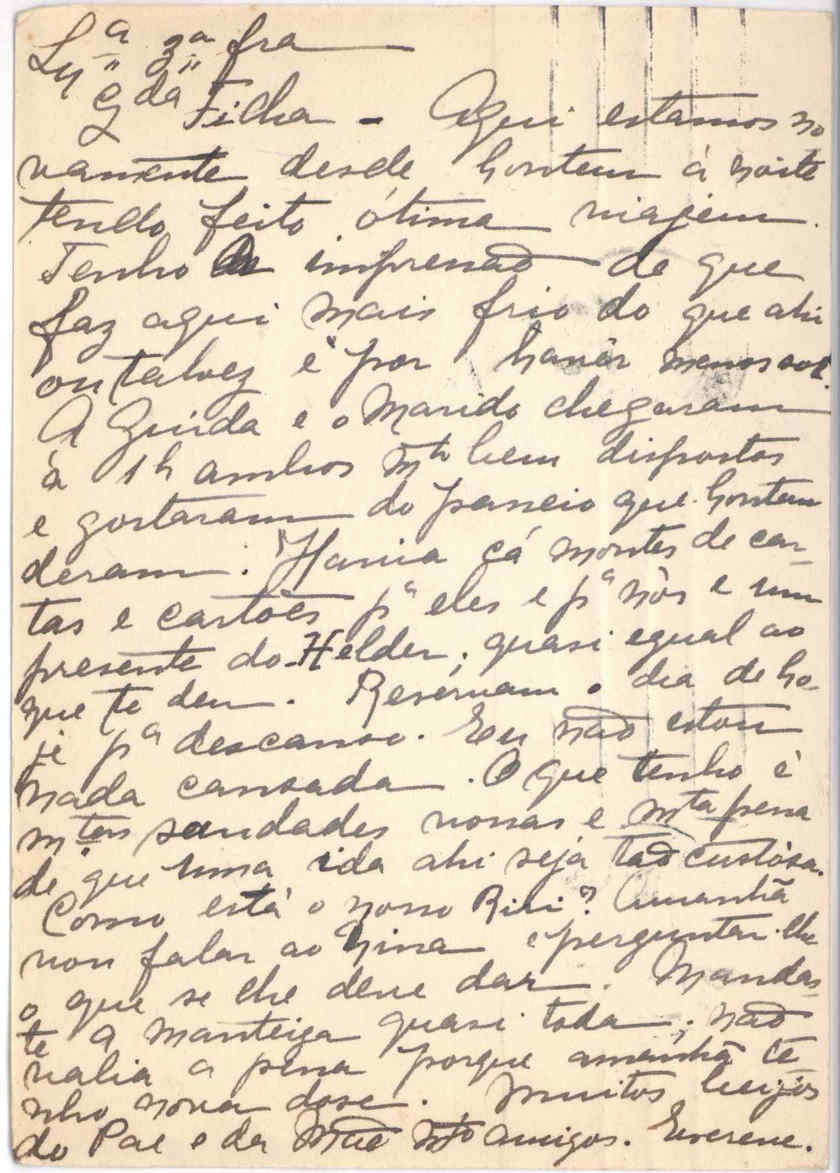 Lxª 3ª fra
Qdª Filha - Aqui estamos no
vamente desde hontem à noite
tendo feito ótima viajem.
Tenho a impressão de que
faz aqui mais frio do que ahi
ou talvez é por havêr menos sol.
A Guida e o Marido chegaram
à 1h ambos mtº bem dispostos
e gostaram do passeio que hontem
deram. Havia cá montes de car-
tas e cartões pª eles e pª nós e um
presente do Helder, quasi egual ao
que te deu. Reservam o dia de ho-
je pª descanso. Eu não estou
nada cansada. O que tenho é
mtas saudades vossas e mta pena
de que uma ida ahi seja tão custósa.
Como está o nosso Riri? Amanhã
vou falar ao Nina e perguntar-lhe
o que se lhe deve dar. Mandas-
te a manteiga quasi toda; não
valia a pena porque amanhã te
nho nova dose. Muitos beijos
do Pae e da Mãe mtº amigos. Escreve.